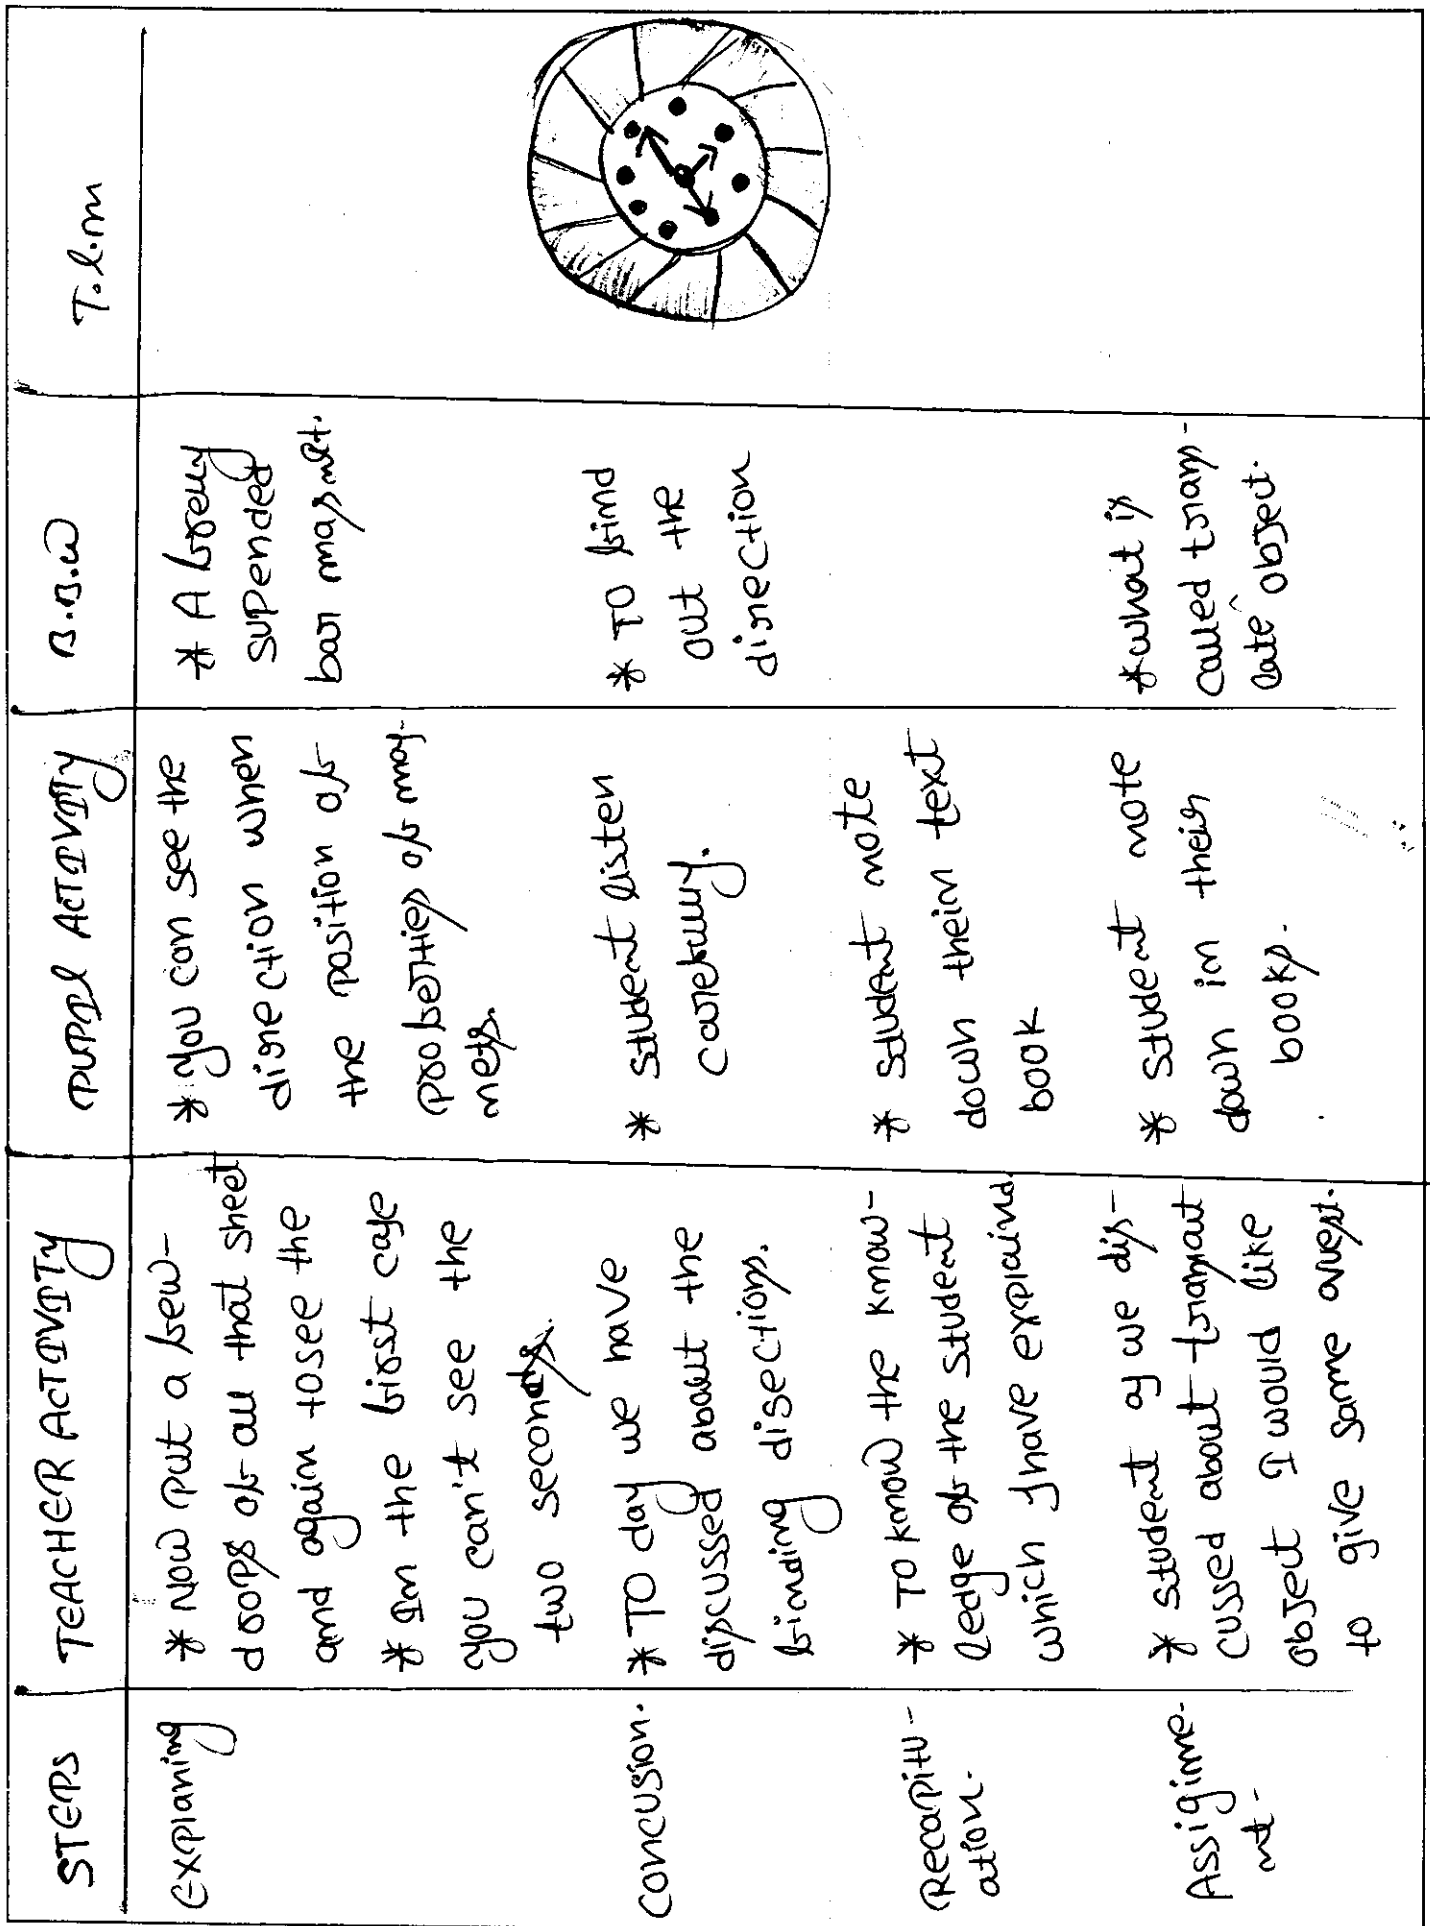 STEPS TEACHER ACTIVITY PUPIL ACTIVITY B.B.W T.L.M
Explaning
* Now put a few-
drops of all that sheet
and again tosee the
* In the first case
you can't see the
two seconds.
* You can see the
direction when
the position of
properties of mag-
nets.
* A freely
suspended
bar magnet.
Concusion.
* TO day we have
discussed about the
finding disections.
* Student listen
carefully.
* TO find
out the
direction
Recapitu-
ation.
* To know the know-
ledge of the student
which I have explaind.
* Student note
down their text
book
Assignime-
nt-
* Student as we dis-
cussed about
object I would like
to give some
* Student note
down in their
books.
* what is
called trans-
late object.